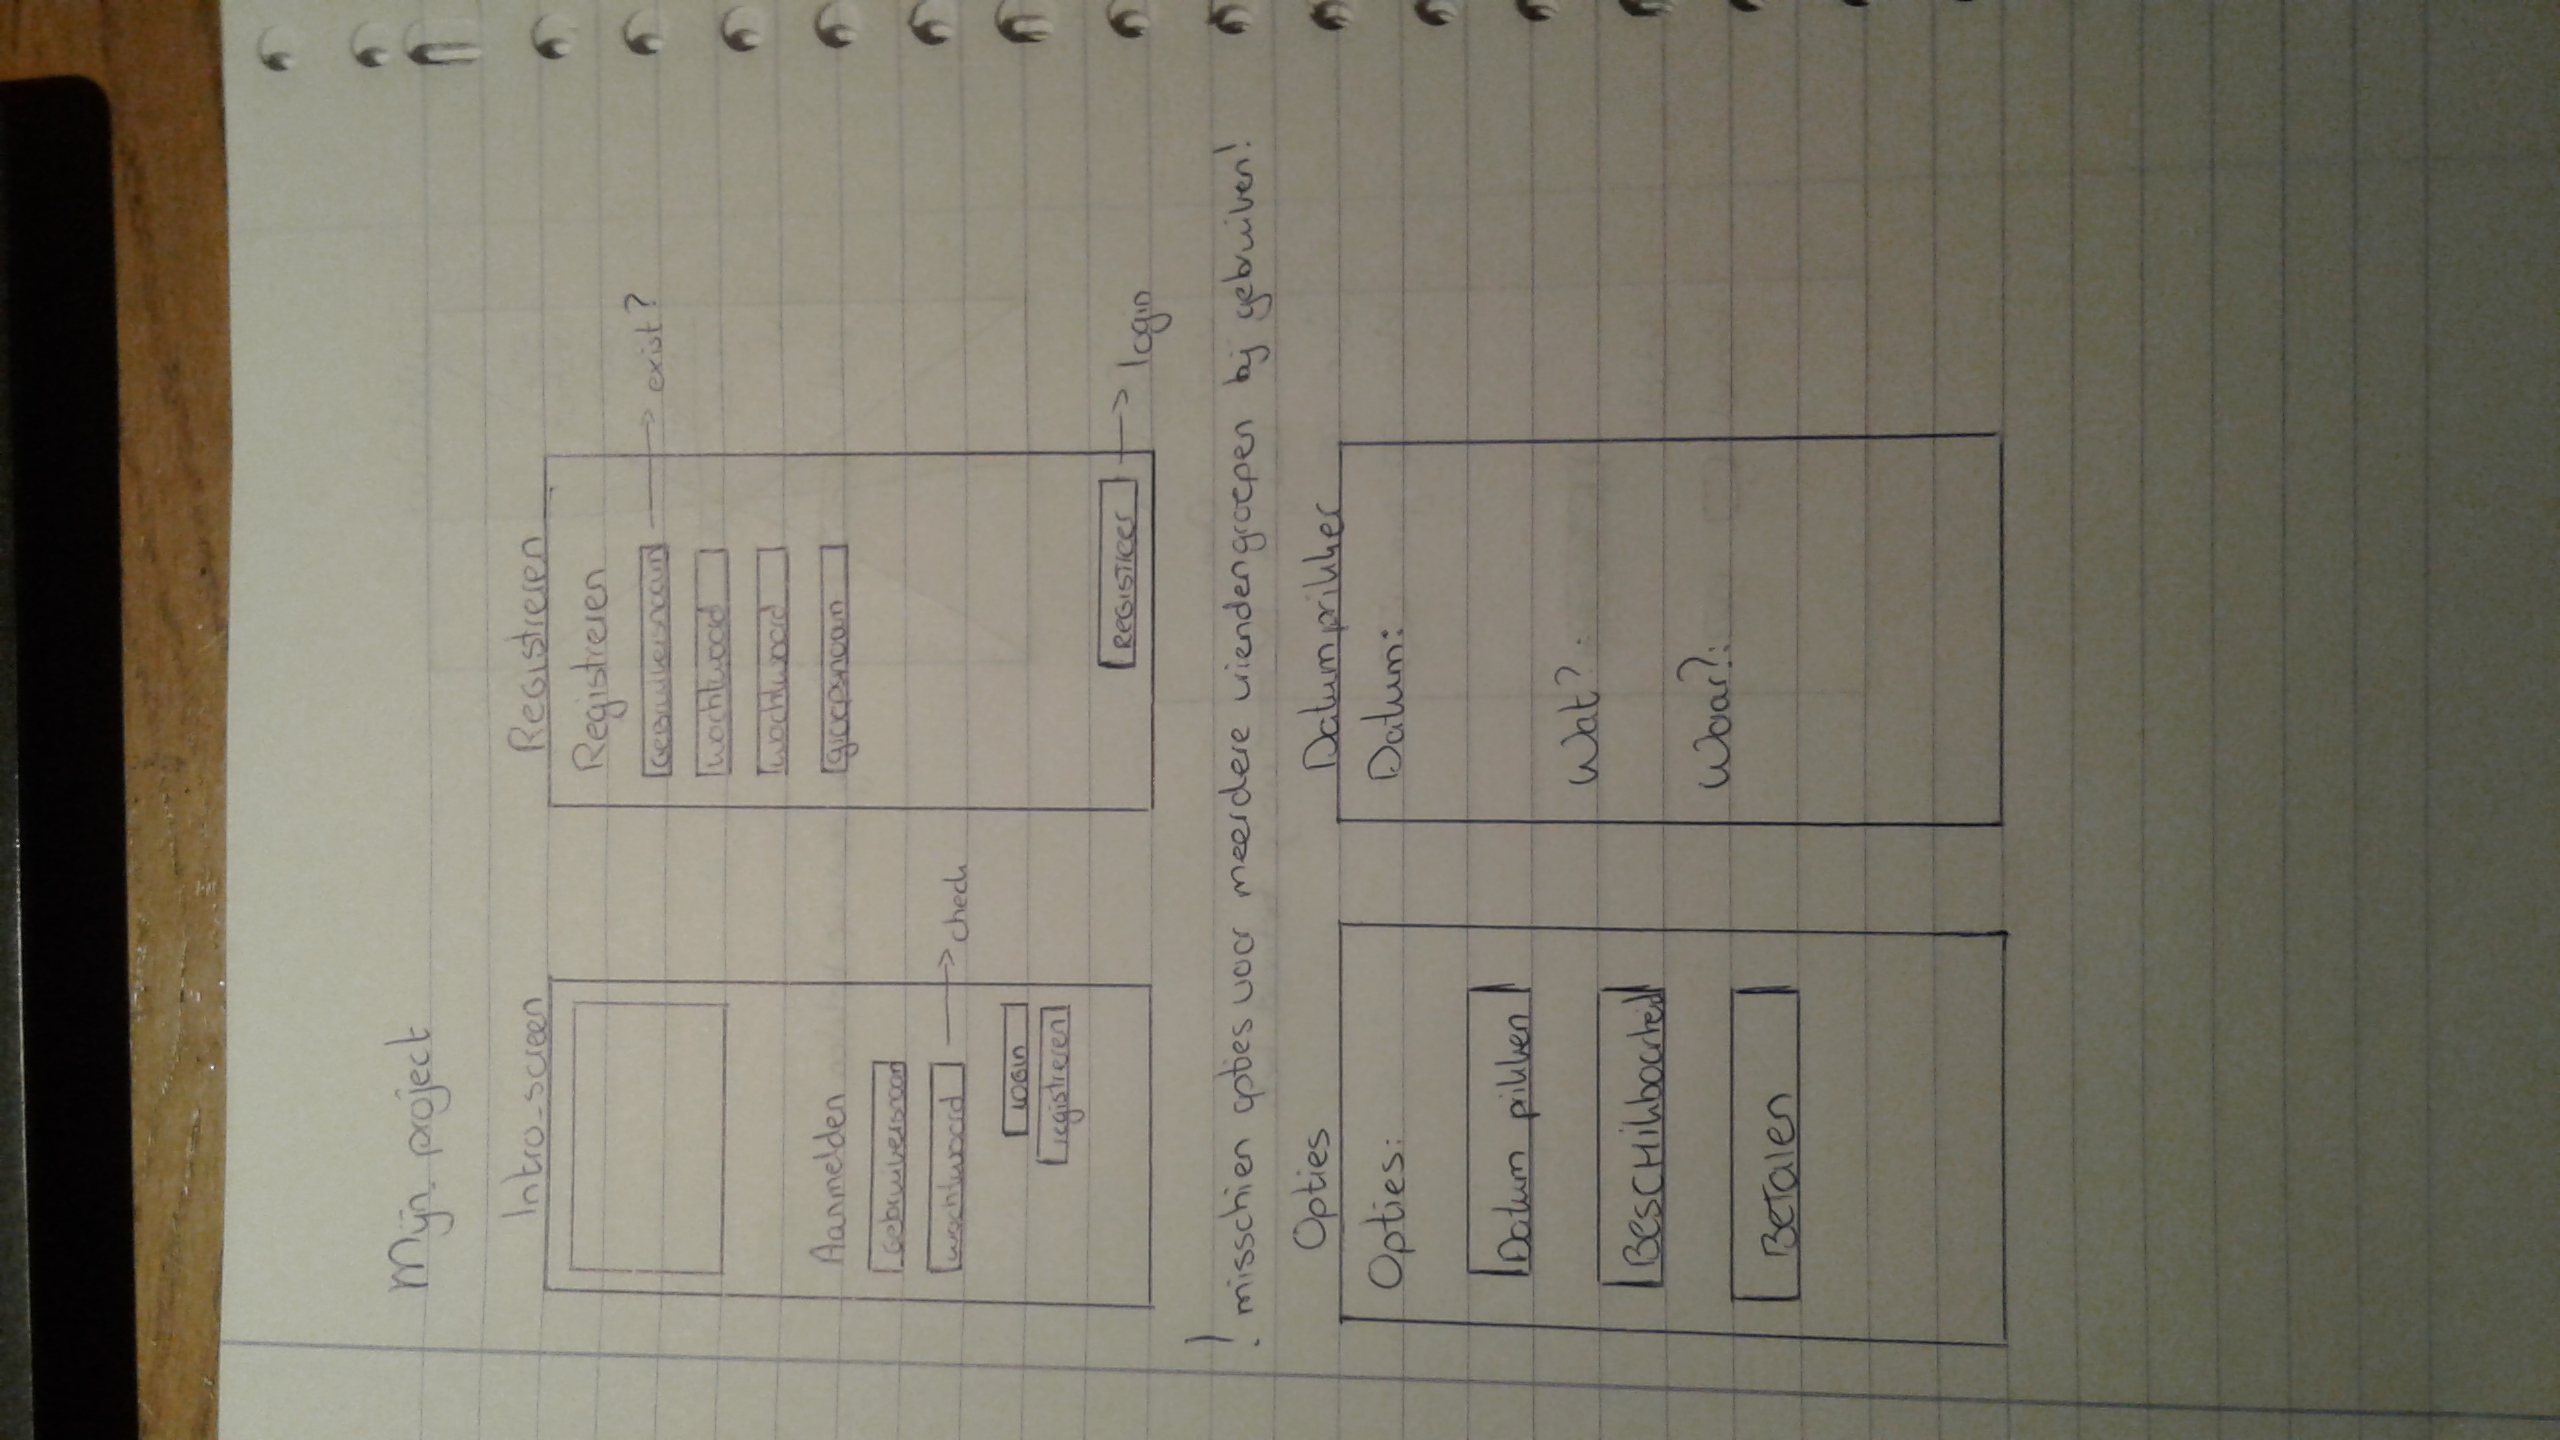 Mijn project
Intro-screen
Aanmelden
Gebruikersnaam
wachtwoord → check
LOGIN
registreren
Registreren
Registreren
Gebruikersnaam → exist?
wachtwoord
wachtwoord
groepsnaam
REGISTREER → login
! misschien opties voor meerdere vriendengroepen bij gebruiken!
Opties
Opties:
Datum prikken
BESCHikbaarheid
BeTalen
Datumprikker
Datum:
Wat? :
Waar?: